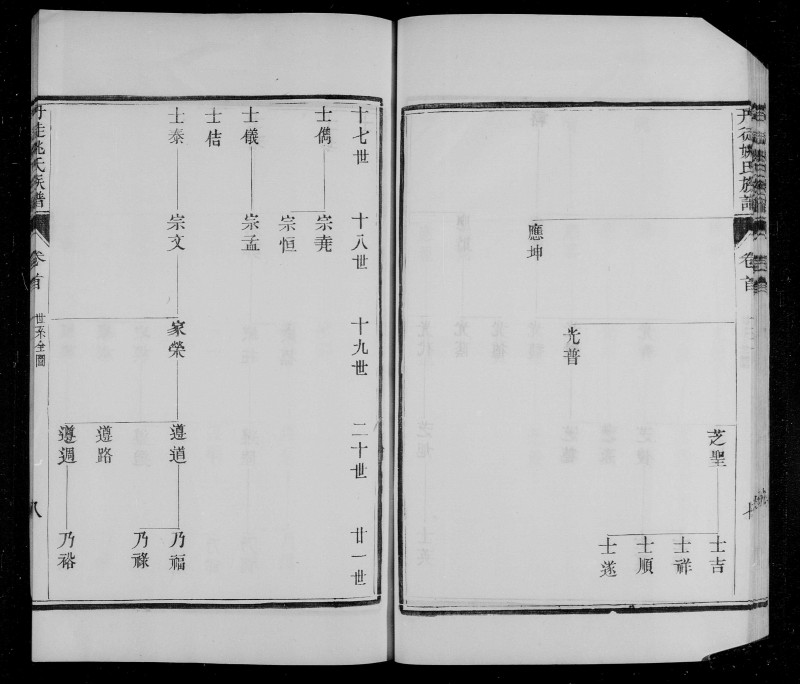 丹徒姚氏族譜
卷首
應坤
光普
芝聖
士吉
士祥
士順
士遂
十七世
十八世
十九世
二十世
廿一世
士儁
宗堯
宗恒
士儀
宗孟
士佶
士泰
宗文
家榮
遵道
乃福
乃祿
遵路
遵週
乃裕
丹徒姚氏族譜
卷首
世系全圖
八